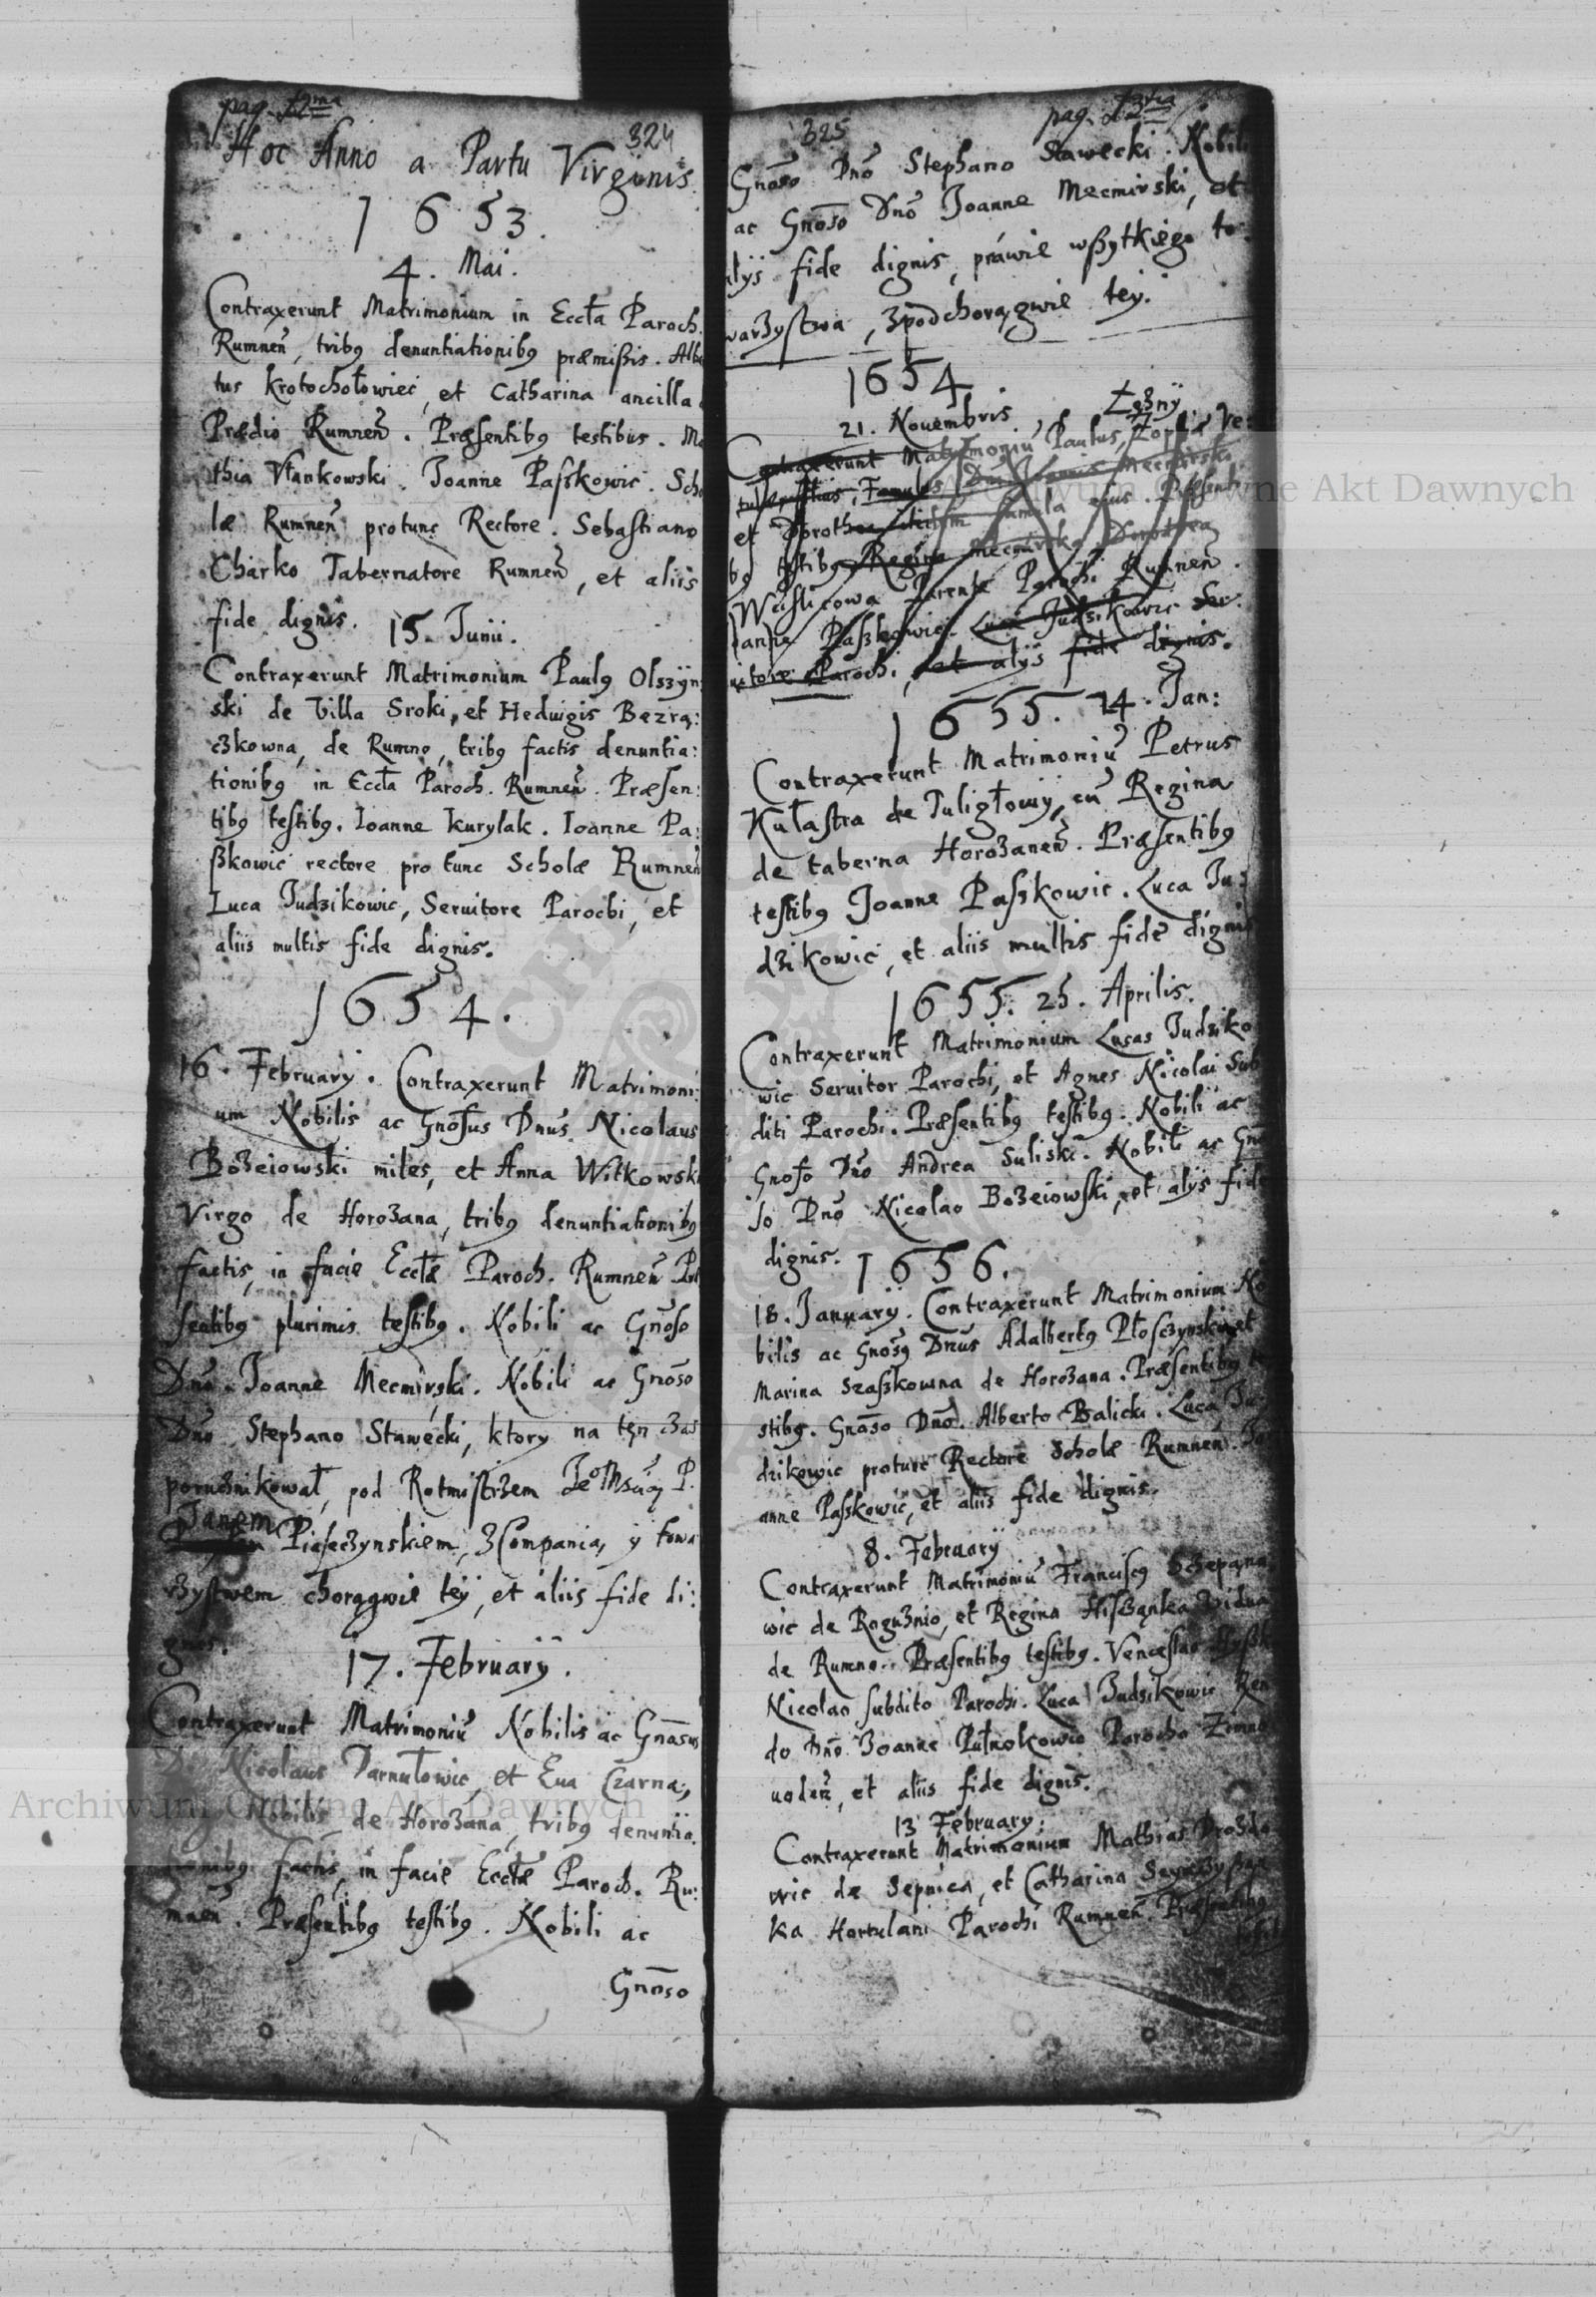 pag. 72ma
324
Hoc Anno a Partu Virginis
1653.
4. Mai.
Contraxerunt Matrimonium in Eccła Paroch.
Rumneñ, tribꝰ denuntiationibꝰ præmißis. Alber
tus Krotochołowiec, et Catharina ancilla
Prædio Rumneñ. Præsentibꝰ testibus. Ma
thia Ułankowski. Joanne Paszkowic. Scho
læ Rumneñ protunc Rectore. Sebastiano
Charko Tabernatore Rumneñ, et aliis
fide dignis.
15. Junii.
Contraxerunt Matrimonium Paulꝰ Olszyn:
ski de Villa Sroki, et Hedwigis Bezrą:
czkowna, de Rumno, tribꝰ factis denuntia:
tionibꝰ in Eccła Paroch. Rumneñ. Præsen:
tibꝰ testibꝰ. Ioanne Kurylak. Ioanne Pa:
ßkowic rectore pro tunc Scholæ Rumneñ
Luca Judzikowic, Seruitore Parochi, et
aliis multis fide dignis.
1654.
16. February. Contraxerunt Matrimoni:
um Nobilis ac Gnosus Dnus Nicolaus
Bozeiowski miles, et Anna Witkowsk
Virgo de Horozana, tribꝰ denuntiationibꝰ
factis, in facie Eccłæ Paroch. Rumneñ Præ
sentibꝰ plurimis testibꝰ. Nobili ac Gnõso
Dnõ. Joanne Mecmirski. Nobili ac Gnõso
Dnõ Stephano Stawecki, ktory na tęn czas
porucznikował, pod Rotmistrzem P.
Janem Piaseczynskiem, z Companią, y towa
rzystwem chorągwie tey, et aliis fide di:
gnis.
17. February.
Contraxerunt Matrimoniũ Nobilis ac Gnõsus
D. Nicolaus Darnułowic, et Eua Czarna,
Nobilis de Horozana, tribꝰ denuntia
tionibꝰ factis, in facie Eccłæ Paroch. Ru:
mneñ. Præsentibꝰ testibꝰ. Nobili ac
Gnõso
325
pag. 73tia
Gnõso Dnõ Stephano Stawecki. Nobili
ac Gnõso Dnõ Joanne Mecmirski, et
alys fide dignis, práwie wßytkiego to:
warzystwa, zpod chorągwie tey.
1654.
21. Nouembris.
Contraxerunt Matrimoniũ Paulus,
Famulus Mecmirski
et Dorothea famula ejus. Præsenti
bꝰ testibꝰ, Regina Mecmirska, Dorothea
Parente Parochi Rumneñ.
Joanne Paszkowic. Luca Judzikowic Ser:
uitore Parochi, et alys fide dignis.
1655. 24. Jan:
Contraxerunt Matrimoniũ Petrus
Kułastra de Tuligłowy, cũ Regina
de taberna Horozaneñ. Præsentibꝰ
testibꝰ Joanne Paszkowic. Luca Ju:
dzikowic, et aliis multis fide dignis
1655. 25. Aprilis.
Contraxerunt Matrimonium Lucas Judziko
wic Seruitor Parochi, et Agnes Nicolai Sub
diti Parochi. Præsentibꝰ testibꝰ. Nobili ac
Gnoso Dnõ Andrea Suliski. Nobili ac Gnõ
so Dnõ Nicolao Bozeiowski, et alys fide
dignis.
1656.
18. January. Contraxerunt Matrimonium No
bilis ac Gnosꝰ Dnus Adalbertꝰ Płosczynski et
Marina Szaszkowna de Horozana. Præsentibꝰ te
stibꝰ. Gnõso Dnõ. Alberto Balicki. Luca Ju
dzikowic protunc Rectore Scholæ Rumneñ. Jo
anne Paszkowic, et aliis fide dignis.
8. February
Contraxerunt Matrimoniũ Franciscꝰ Sczepąno
wic de Roguznio, et Regina Hisząnka Vidua
de Rumno. Præsentibꝰ testibꝰ. Venceslao
Nicolao subdito Parochi. Luca Judzikowic Ren
do Dnõ Joanne Pułnokowic Parocho Zimno
uodeñ, et aliis fide dignis.
13 February.
Contraxerunt Matrimonium Mathias Drozdo
wic de Sepnica, et Catharina
ka Hortulani Parochi Rumneñ. Præsentibꝰ
testi
Archiwum Główne Akt Dawnych
Archiwum Główne Akt Dawnych